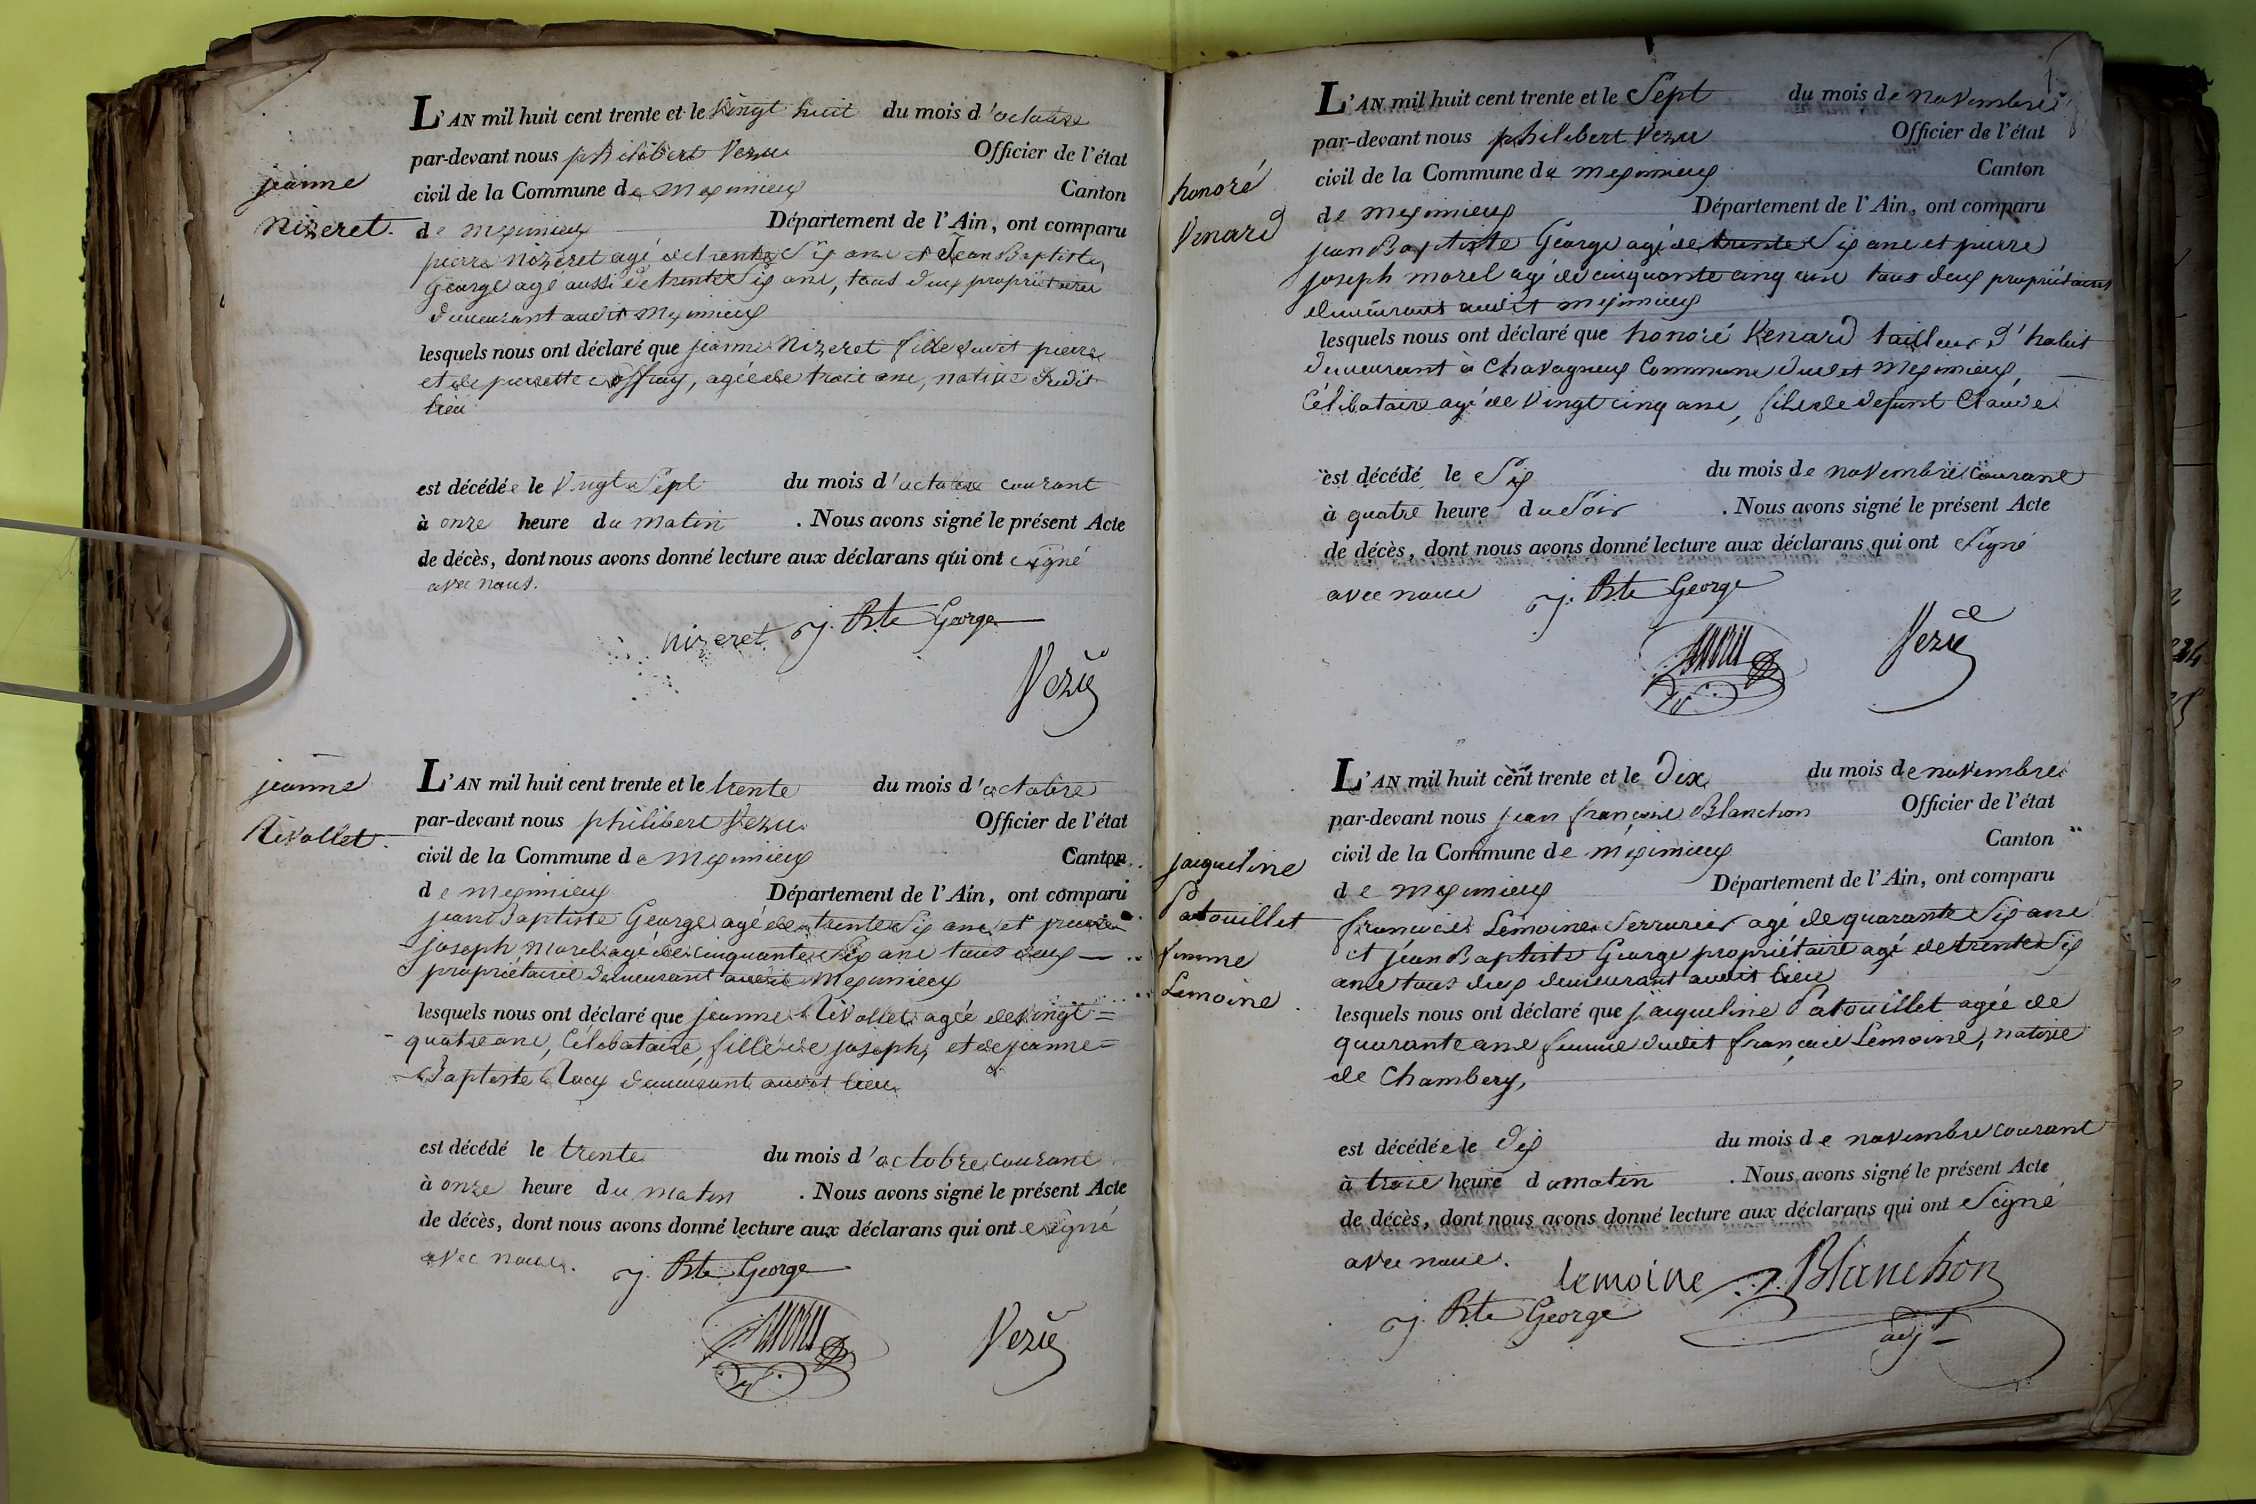 jeanne
Nizeret.
L'AN mil huit cent trente et le vingt huit du mois d'octobre
par-devant nous philibert Vezu Officier de l'état
civil de la Commune de Meximieux Canton
de Meximieux Département de l'Ain, ont comparu
pierre Nizeret agé de trente Six ans et Jean Baptiste
George agé aussi de trente Six ans, tous deux propriétaires
demeurant audit Meximieux
lesquels nous ont déclaré que jeanne Nizeret fille dudit pierre
et de pierrette, agée de trois ans, native dudit
lieu
est décédée le Vingt Sept du mois d'octobre courant
à onze heure du matin . Nous avons signé le présent Acte
de décès, dont nous avons donné lecture aux déclarans qui ont signé
avec nous.
nizeret J. Bte George
Vezu
jeanne
Rivollet.
L'AN mil huit cent trente et le trente du mois d'octobre
par-devant nous philibert Vezu Officier de l'état
civil de la Commune de Meximieux Canton
de Meximieux Département de l'Ain, ont comparu
jean Baptiste George agé de trente Six ans et pierre
joseph Morel agé de cinquante Six ans tous deux
propriétaires demeurant audit Meximieux
lesquels nous ont déclaré que jeanne Rivollet agée de vingt =
quatre ans, Célibataire, fille de joseph, et de jeanne =
Baptiste demeurant audit lieu
est décédé le trente du mois d'octobre courant
à onze heure du matin . Nous avons signé le présent Acte
de décès, dont nous avons donné lecture aux déclarans qui ont signé
avec nous.
J. Bte George
Vezu
honoré
Venard
L'AN mil huit cent trente et le Sept du mois de novembre
par-devant nous philibert Vezu Officier de l'état
civil de la Commune de Meximieux Canton
de Meximieux Département de l'Ain, ont comparu
jean Baptiste George agé de trente Six ans et pierre
joseph morel agé de cinquante cinq ans tous deux propriétaires
demeurans audit Meximieux
lesquels nous ont déclaré que honoré Venard tailleur d'habit
demeurant à Chavagneux Commune dudit Meximieux,
Célibataire agé de Vingt cinq ans, fils de defunt Claude
est décédé le Six du mois de novembre courant
à quatre heure du Soir . Nous avons signé le présent Acte
de décès, dont nous avons donné lecture aux déclarans qui ont Signé
avec nous
J. Bte George
Vezu
jacqueline
Patouillet
femme
Lemoine
L'AN mil huit cent trente et le dix du mois de novembre
par-devant nous jean françois Blanchon Officier de l'état
civil de la Commune de Meximieux Canton
de Meximieux Département de l'Ain, ont comparu
francois Lemoine Serrurier agé de quarante Six ans
et jean Baptiste George propriétaire agé de trente Six
ans tous deux demeurant audit lieu
lesquels nous ont déclaré que jacqueline Patouillet agée de
quarante ans femme dudit françois Lemoine, native
de Chambery,
est décédée le dix du mois de novembre courant
à trois heure du matin . Nous avons signé le présent Acte
de décès, dont nous avons donné lecture aux déclarans qui ont Signé
avec nous.
lemoine J. Blanchon
J. Bte George
adjt